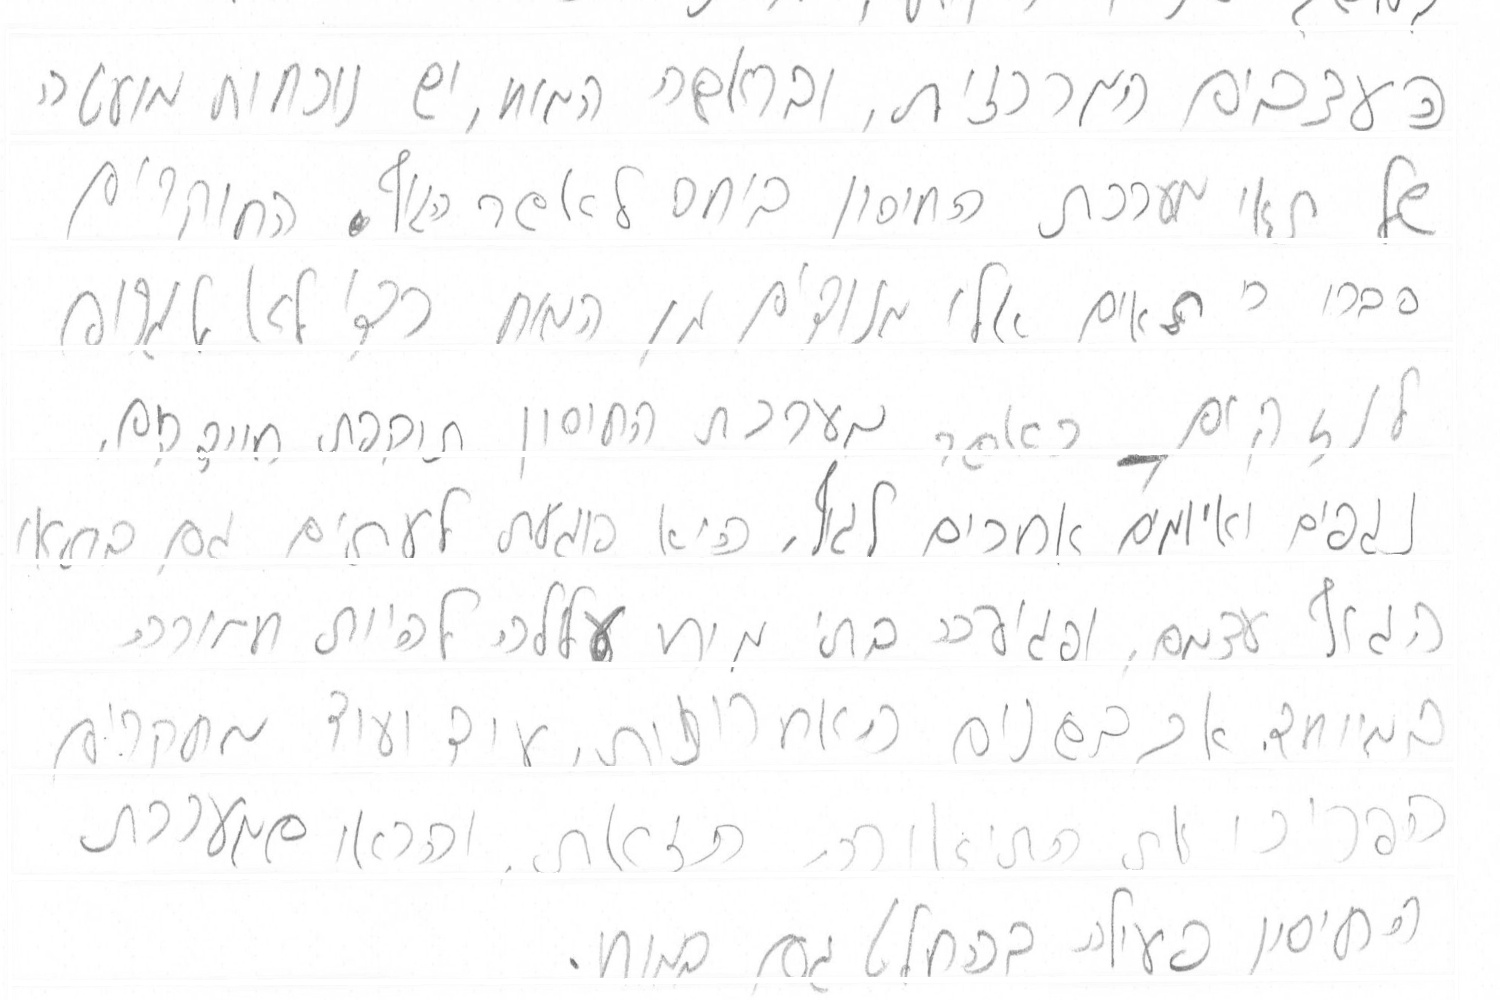 העצבים המרכזית, ובראשה המוח, יש נוכחות מועטה
של תאי מערכת החיסון ביחס לשאר הגוף. החוקרים
סברו כי תאים אלו מנודים מן המוח כדי לא לגרום
לנזקים כאשר מערכת החיסון תוקפת חיידקים,
נגפים ואיומים אחרים לגוף, היא פוגעת לעתים גם בתאי
הגוף עצמם, ופגיעה בתאי מוח עלולה להיות חמורה
במיוחד. אך בשנים האחרונות, עוד ועוד מחקרים
הפריכו את התיאוריה הזאת, והראו שמערכת
החיסון פעילה בהחלט גם במוח.